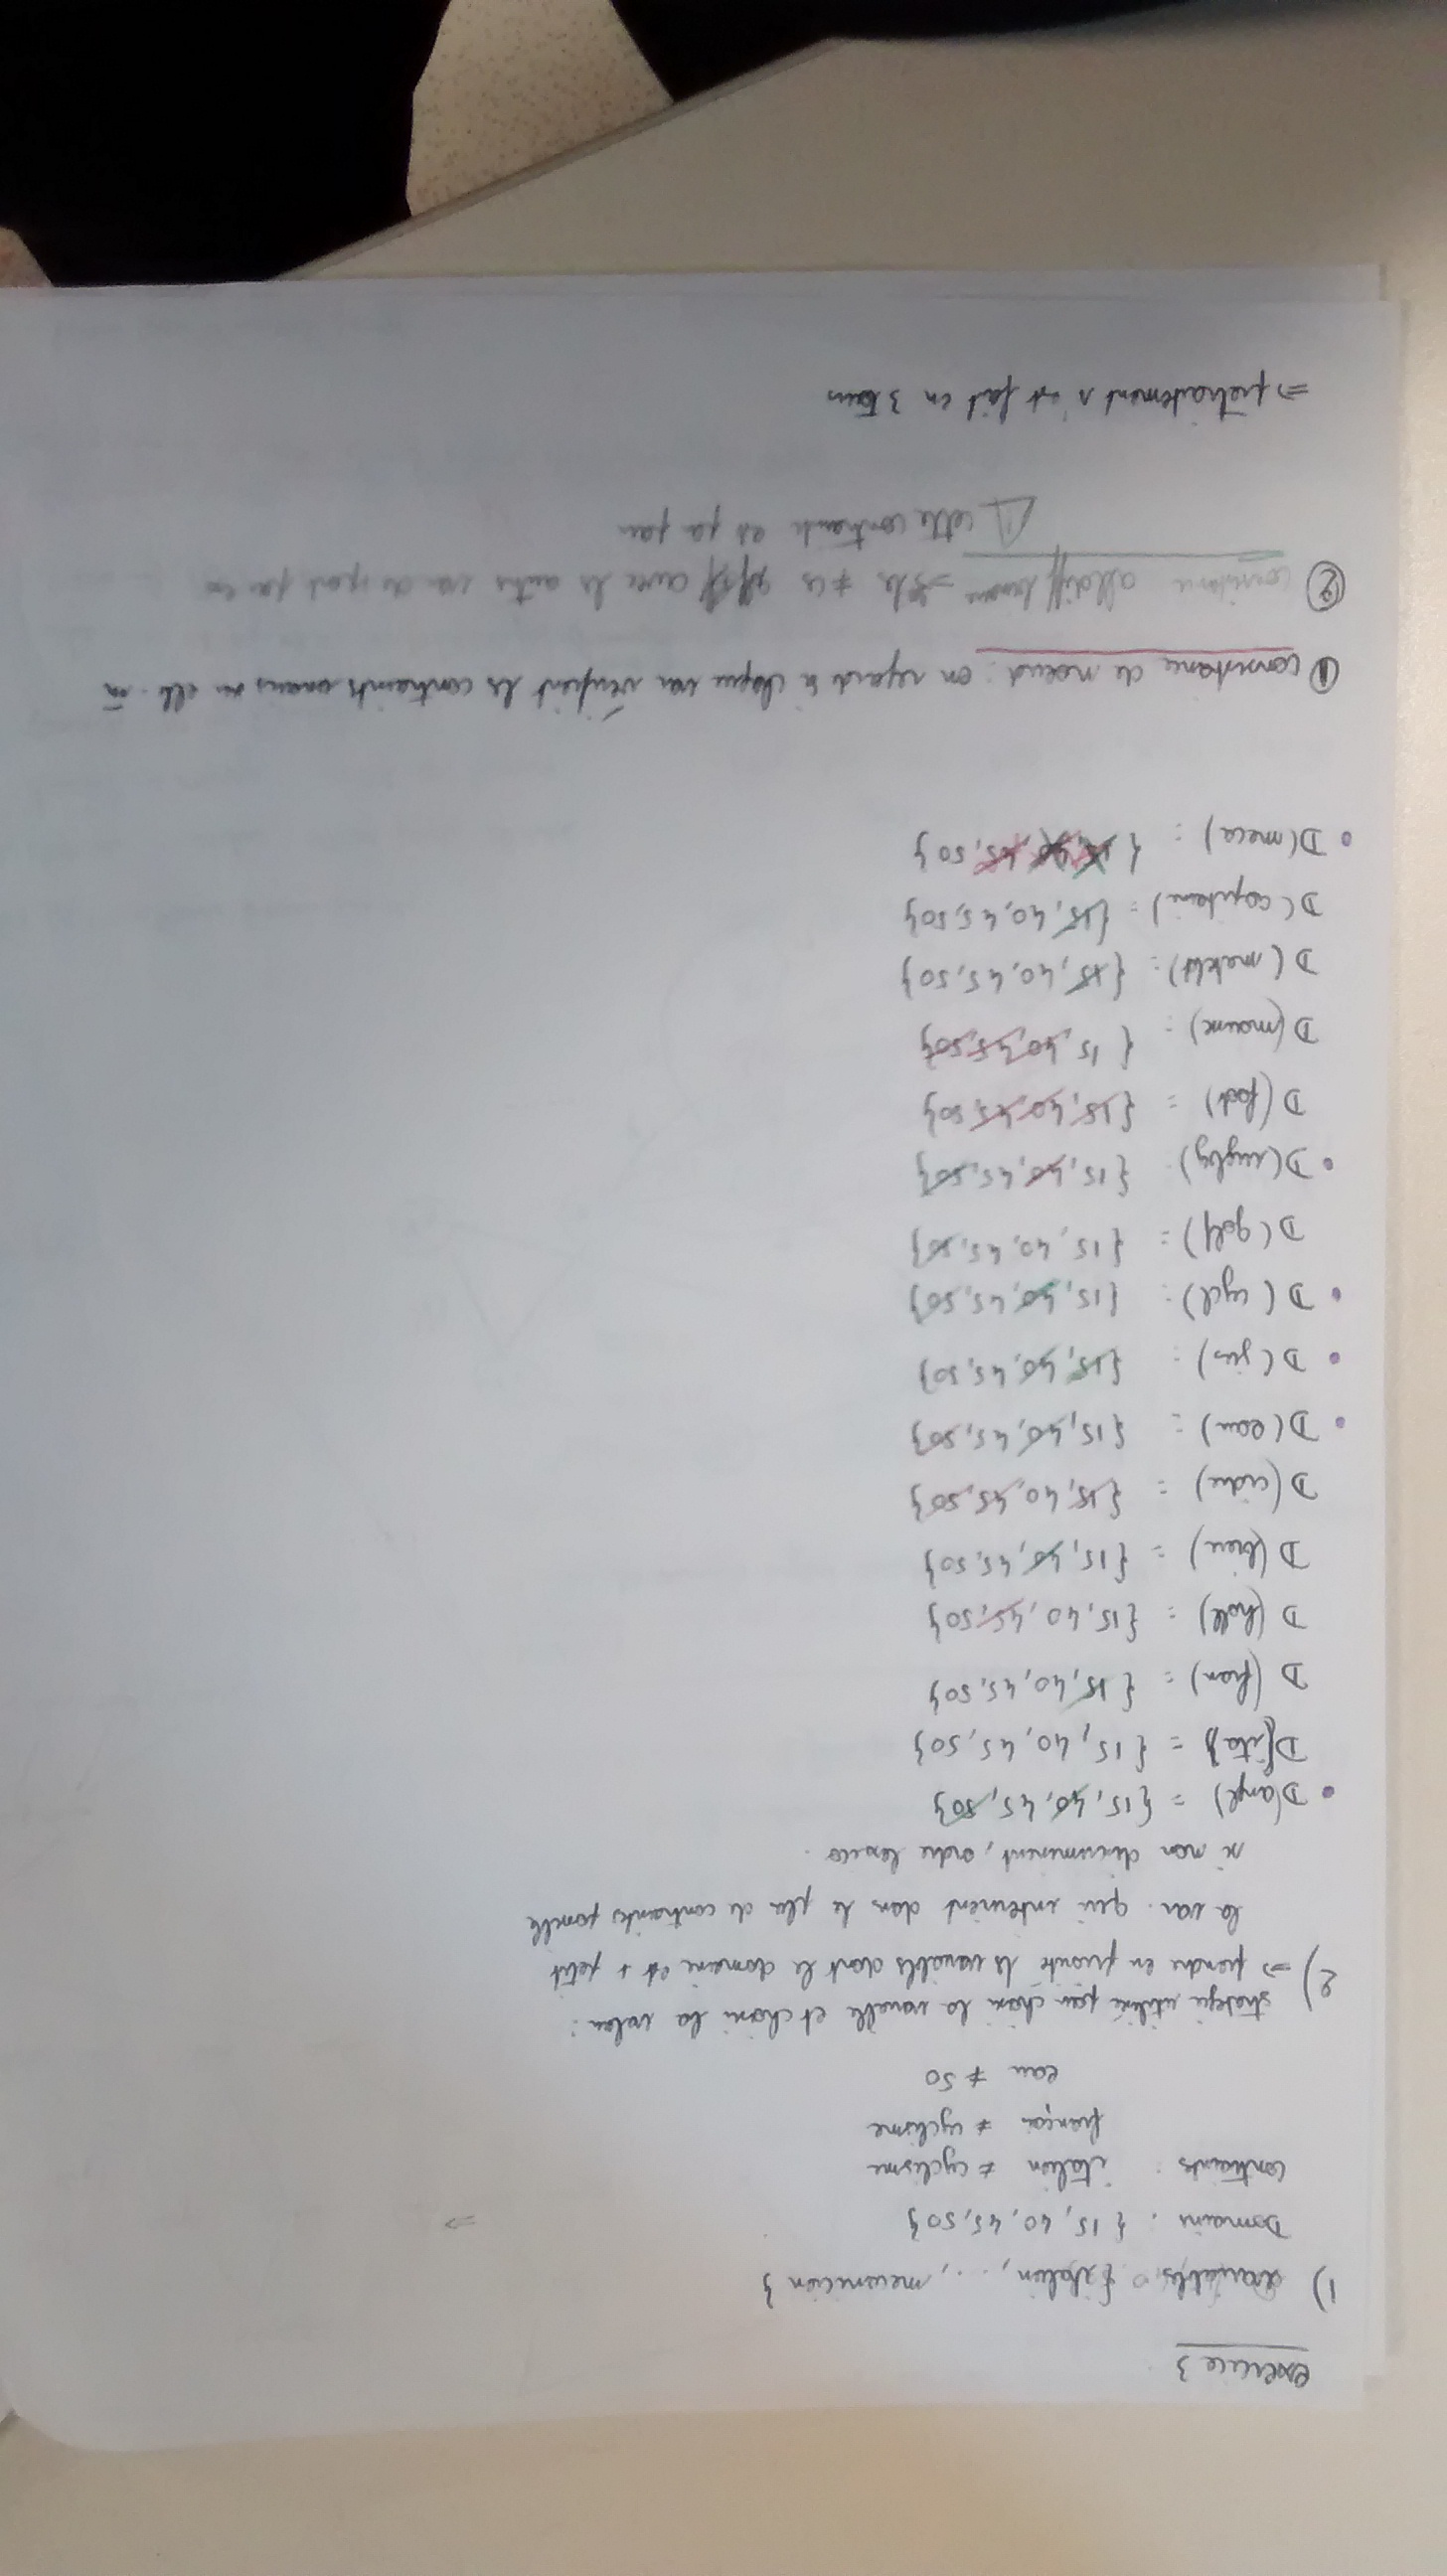 exercice 3
1) variables : { italien, ..., mecanicien }
Domaine : { 15, 40, 45, 50 }
contraints : italien ≠ cyclisme
français ≠ cyclisme
eau ≠ 50
2) stratégie utilisée pour choisir la variable et choisir la valeur :
⇒ prendre en priorité les variables dont le domaine est + petit
la var. qui intervient dans le plus de contraintes possible
si non discriminent, ordre lexico.
• D(angl) = {15, 40, 45, 50}
D(ita) = {15, 40, 45, 50}
D(fran) = {15, 40, 45, 50}
D(holl) = {15, 40, 45, 50}
D(biere) = {15, 40, 45, 50}
D(cidre) = {15, 40, 45, 50}
• D(eau) = {15, 40, 45, 50}
• D(jus) : {15, 40, 45, 50}
• D(cycl) : {15, 40, 45, 50}
D(golf) = {15, 40, 45, 50}
• D(rugby) {15, 40, 45, 50}
D(foot) = {15, 40, 45, 50}
D(marine) : {15, 40, 45, 50}
D(matelot) : {15, 40, 45, 50}
D(capitaine) = {15, 40, 45, 50}
• D(meca) : {15, 40, 45, 50}
① consistance de noeud : on regarde si chaque var vérifient les contraints unaires sur elle-m̄
② consistance alldiff avec les autres
⚠ cette contrainte est pa
⇒ prétraitement s'est fait en 3 tours